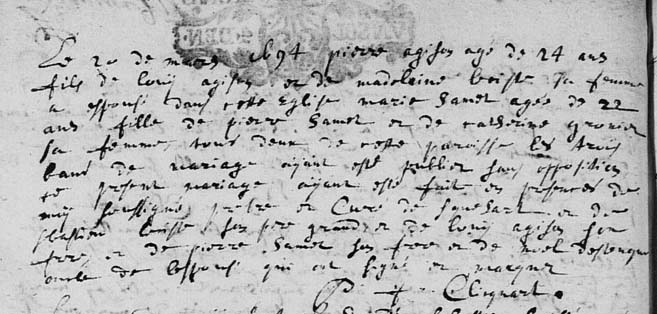 Le 20 de mars 1694 pierre agison agé de 24 ans
fils de louis agison et de madelaine beiste sa femme
a espousé dans cette Eglise marie Samet agée de 22
ans fille de pierre Samet et de catherine gronier
sa femme tous deux de cette paroisse les trois
bans de mariage ayant esté publiez sans opposition
ce present mariage ayant esté fait en presences de
moy soussigné prestre et Curé de et de
sbastien beiste son pere grand et de louis agison son
frere et de pierre Samet son frere et de noel
oncle de lespouse qui ont signé et marqué
Cliquart